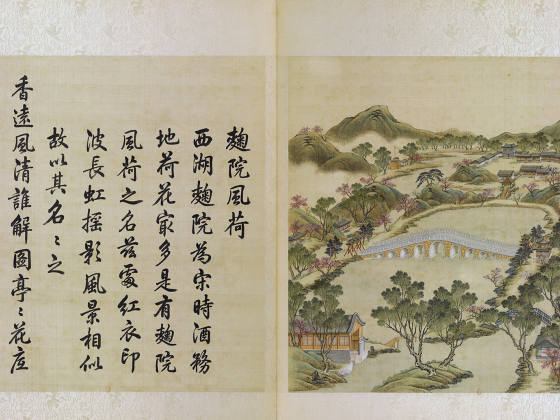 麹院風荷
西湖麹院為宋時酒務
地荷花㝡多是有麹院
風荷之名茲處紅衣印
波長虹摇影風景相似
故以其名〻之
香遠風清誰解圖亭〻花底